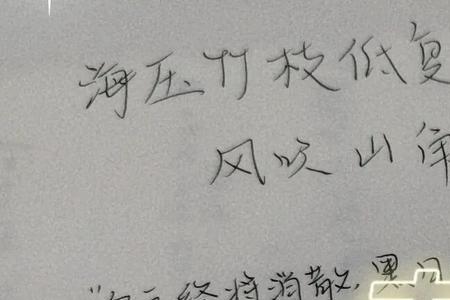 海压竹枝低复
风吹山角
终将消散,黑